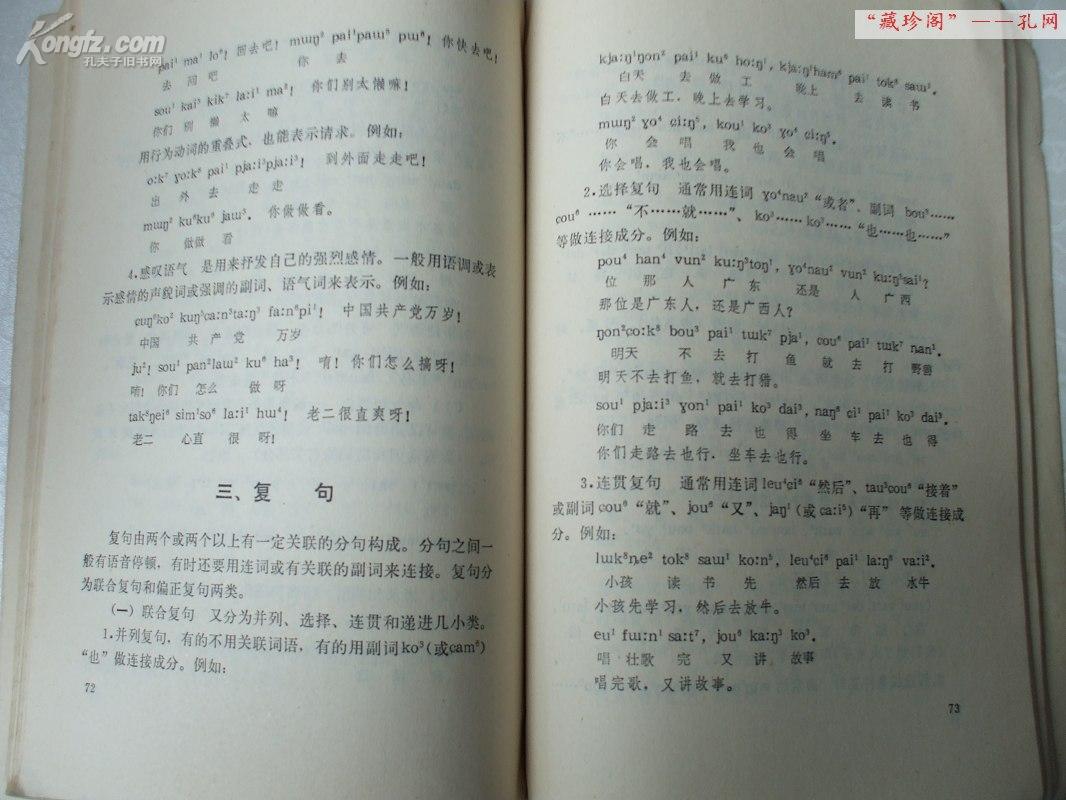 Kongfz.com
孔夫子旧书网
“藏珍阁”——孔网
pai¹ ma¹ lo⁶! 回去吧! mɯŋ² pai¹paɯ⁵ pɯ⁶! 你快去吧!
去 回 吧 你 去
sou¹ kai⁵ kik⁷ la:i¹ ma²! 你们别太懒嘛!
你们 别 懒 太 嘛
用行为动词的重叠式，也能表示请求。例如:
o:k⁷ ɣo:k⁸ pai¹ pja:i³pja:i³! 到外面走走吧!
出 外 去 走走
mɯŋ² ku⁶ku⁶ jaɯ³. 你做做看。
你 做做 看
4.感叹语气 是用来抒发自己的强烈感情。一般用语调或表
示感情的声貌词或强调的副词、语气词来表示。例如:
ɕuŋ⁶ko² kuŋ⁵ca:n³ta:ŋ³ fa:n⁶pi¹! 中国共产党万岁!
中国 共 产 党 万岁
ju²! sou¹ pan²laɯ² ku⁶ ha³! 唷! 你们怎么搞呀!
唷! 你们 怎么 做 呀
tak⁸ŋei⁶ sim¹so⁶ la:i¹ hɯ⁴! 老二很直爽呀!
老二 心直 很 呀!
三、复 句
复句由两个或两个以上有一定关联的分句构成。分句之间一
般有语音停顿，有时还要用连词或有关联的副词来连接。复句分
为联合复句和偏正复句两类。
(一) 联合复句 又分为并列、选择、连贯和递进几小类。
1.并列复句，有的不用关联词语，有的用副词ko³(或cam⁶)
“也”做连接成分。例如:
72
kja:ŋ¹ŋon² pai¹ ku⁶ ho:ŋ¹, kja:ŋ¹ham⁶ pai¹ tok⁸ saɯ¹.
白天 去 做 工 晚上 去 读 书
白天去做工，晚上去学习。
mɯŋ² ɣo⁴ ɕi:ŋ⁵, kou¹ ko³ ɣo⁴ ɕi:ŋ⁵.
你 会 唱 我 也 会 唱
你会唱，我也会唱。
2.选择复句 通常用连词 ɣo⁴nau² “或者”、副词 bou³……
cou⁶ …… “不……就……”、ko³……ko³…… “也……也……”
等做连接成分。例如:
pou⁴ han⁴ vun² ku:ŋ³toŋ¹, ɣo⁴nau² vun² ku:ŋ³sai¹?
位 那 人 广 东 还是 人 广 西
那位是广东人，还是广西人?
ŋon²co:k⁸ bou³ pai¹ tɯk⁷ pja¹, cou⁶ pai¹ tɯk⁷ nan¹.
明天 不 去 打 鱼 就 去 打 野兽
明天不去打鱼，就去打猎。
sou¹ pja:i³ ɣon¹ pai¹ ko³ dai³, naŋ⁶ ci¹ pai¹ ko³ dai³.
你们 走 路 去 也 得 坐 车 去 也 得
你们走路去也行，坐车去也行。
3.连贯复句 通常用连词leu⁴ci⁶ “然后”、tau³cou⁶ “接着”
或副词cou⁶ “就”、jou⁶ “又”、jaŋ¹ (或ca:i⁵) “再” 等做连接成
分。例如:
lɯk⁸ȵe² tok⁸ saɯ¹ ko:n⁵, leu⁴ci⁶ pai¹ la:ŋ⁶ va:i².
小孩 读 书 先 然后 去 放 水牛
小孩先学习，然后去放牛。
eu¹ fɯ:n¹ sa:t⁷, jou⁶ ka:ŋ³ ko³.
唱 壮歌 完 又 讲 故事
唱完歌，又讲故事。
73